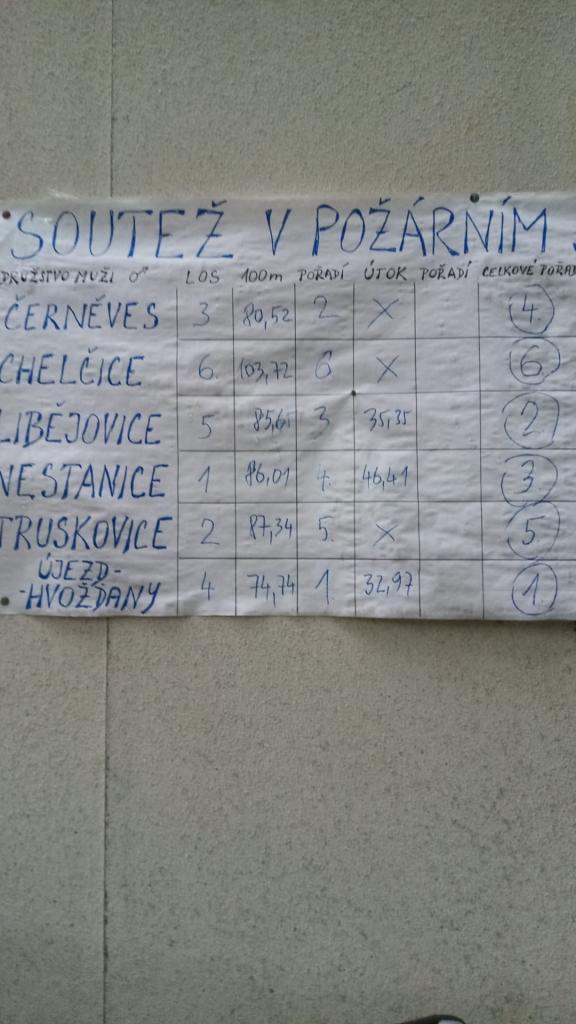 SOUTEŽ V POŽÁRNÍM
DRUŽSTVO MUŽI ♂ LOS 100m POŘADÍ ÚTOK POŘADÍ CELKOVÉ POŘAD
ČERNĚVES 3 80,52 2 X 4
CHELČICE 6. 103,72 6. X 6.
LIBĚJOVICE 5 85,61 3 35,35 2
NESTANICE 1 86,01 4. 46,41 3
TRUSKOVICE 2 87,34 5. X 5
ÚJEZD-
-HVOŽĎANY 4 74,74 1. 32,97 1.